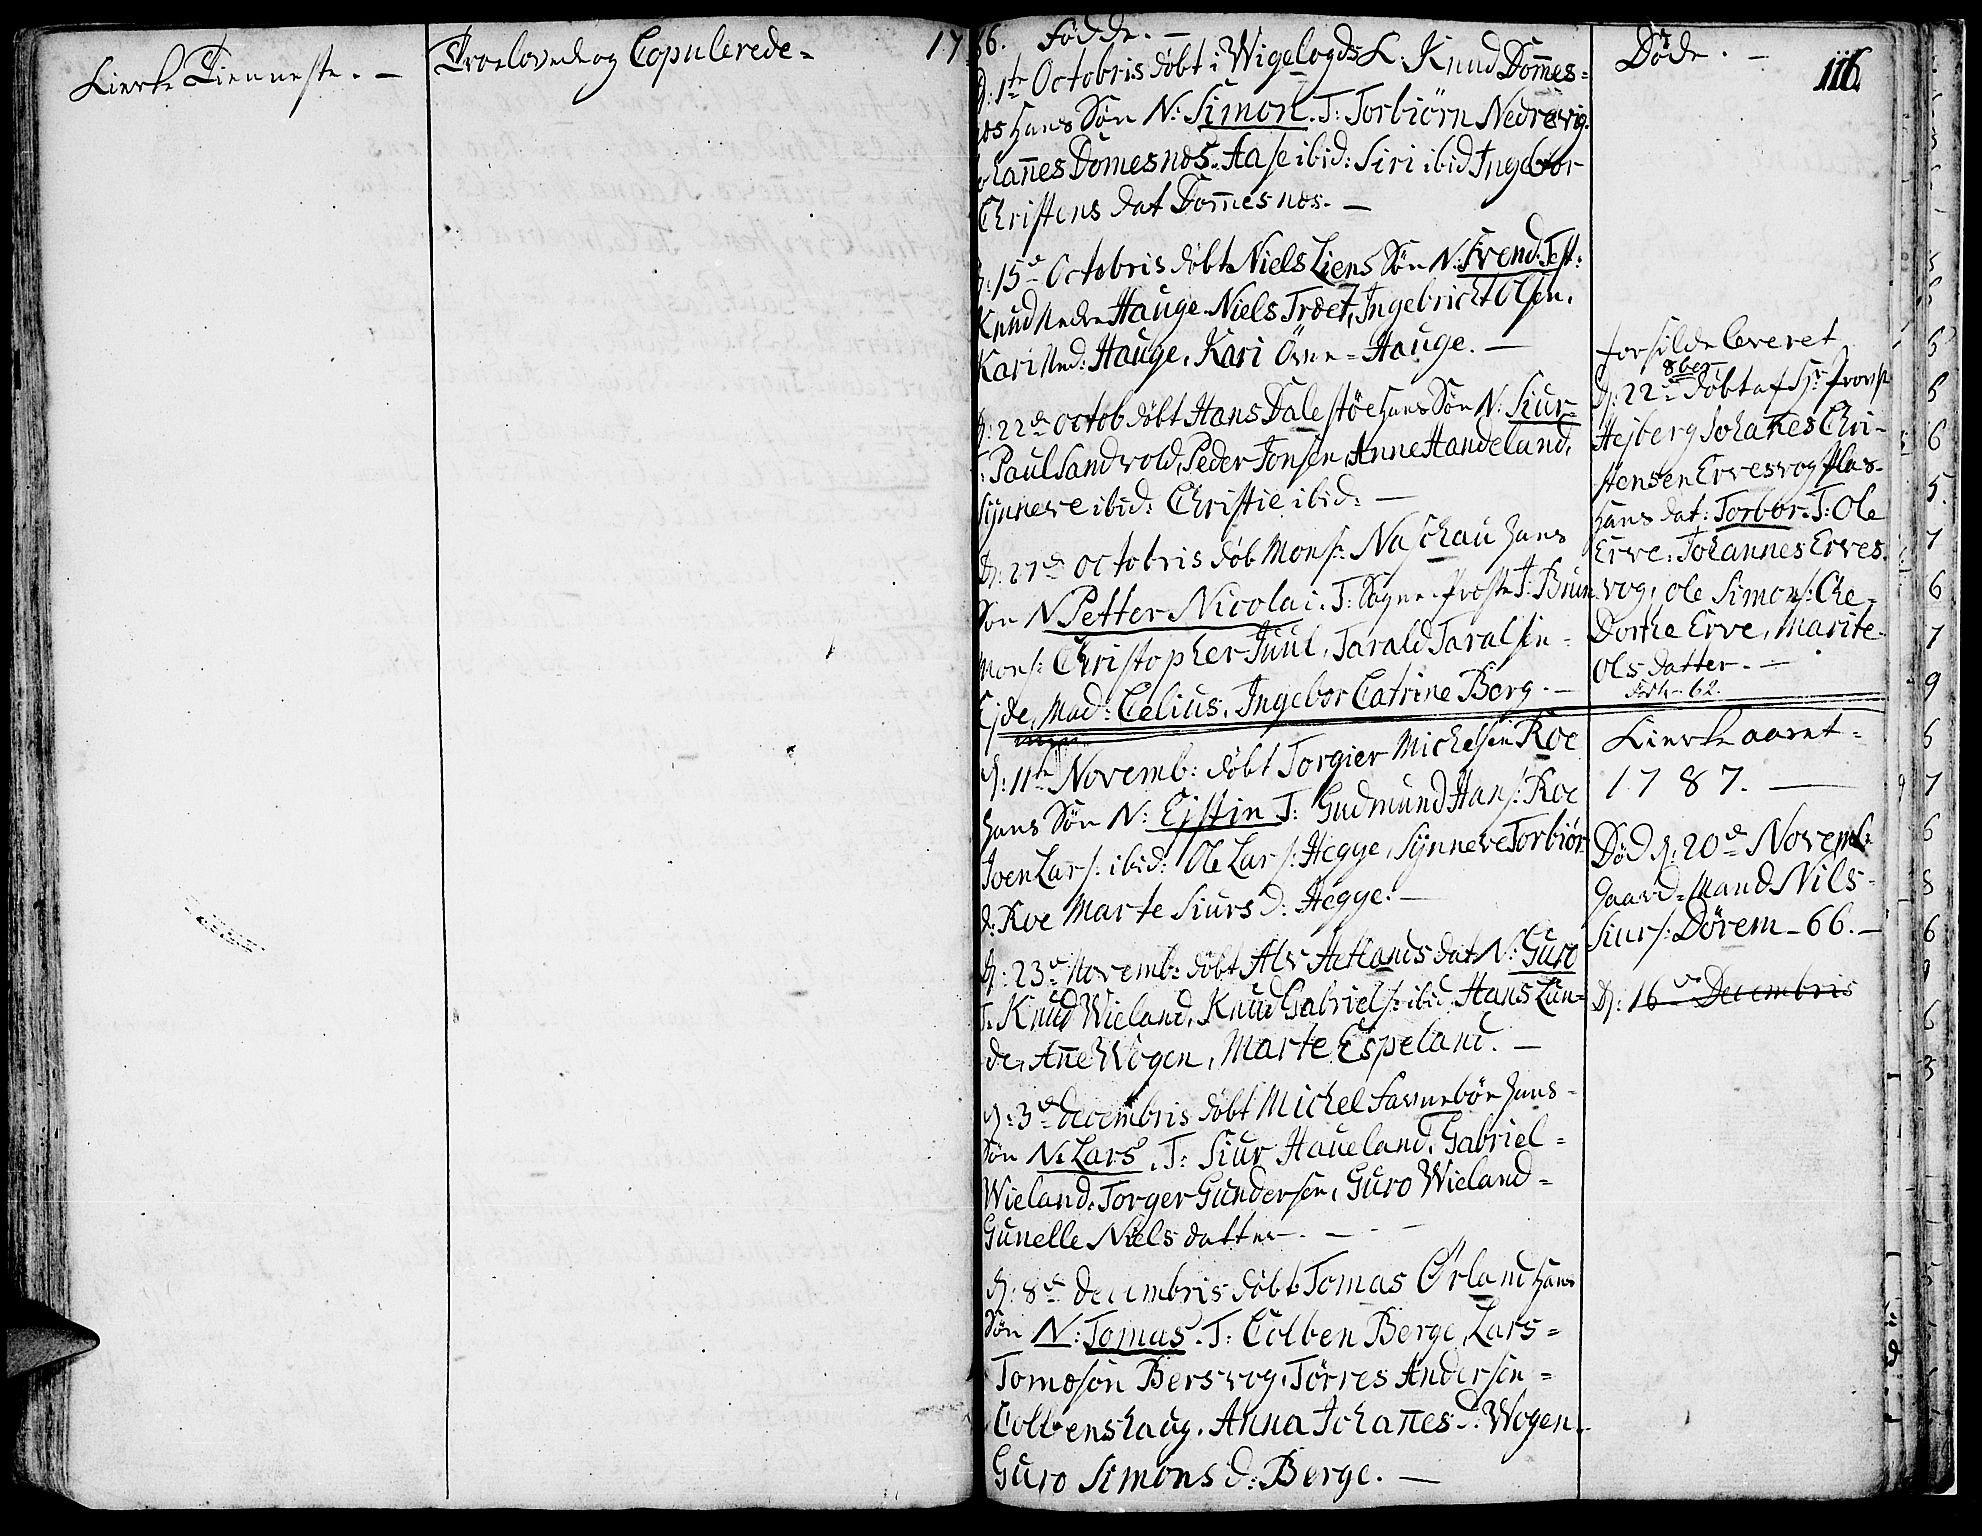 Kierke Tienneste. —
Troelovede og Copulerede =
17
86. Fødde. —
D: 1te Octobris døbt i Wigelogds L: Knud Dom̄es=
nos hans Søn N: Simon. T: Torbiørn Nedrevig.
Johan̄es Domesnos. Aase ibid: Siri ibid Ingebor
Christens dat Dom̄esnos. —
D: 15de Octobris døbt Niels Liens Søn N: Svend. Test:
Knud Nedre Hauge. Niels Trœt, Ingebricht Olsen.
Kari Ned: Hauge, Kari Övre = Hauge. —
D: 22de octob døbt Hans Dalestøe hans Søn N: Siur
T: Paul Sandvold, Peder Jonsen, Anne Handeland,
Synneve ibid: Christie ibid: —
D: 27de octobris døb Mons: Naschau hans
Søn N Petter Nicolai. T: Sogne Proste T: Brun
Mons: Christopher Juul, Tarald Taralsen =
Ejde, Mad: Celius, Ingebor Catrine Berg. —
D: 11te Novemb: døbt Torgier Michelsen Roe
hans Søn N: Ejstin T: Gudmund Hans: Roe
Joen Lars: ibid: Ole Lars: Hegge, Synneve Torbiør
d: Roe Marte Siurs d: Hegge. —
D: 23de Novemb: døbt Alv Aetlands dat N: Guro
T: Knud Wieland, Knud Gabriels: ibid Hans Lun=
de, An̄e Wogen, Marte Espeland. —
D: 3de decembris døbt Michel Favnebøe hans =
Søn N: Lars. T: Siur Haveland, Gabriel =
Wieland, Torger Gundersen, Guro Wieland =
Gunelle Niels datter. — —
D: 8de decembris døbt Tomas Ørland hans
Søn N: Tomas. T: Colben Berge, Lars =
Tomøsøn Bersvog, Tørres Andersen =
Colbenshaug. Anna Johan̄es d: Wogen.
Guro Simons d: Berge. —
Døde. —
116.
for silde leveret
8ber
D: 22de døbt af Hr: Provst
Hejberg Johan̄es Chri-
stensen Ervesvog Plas-
hans dat: Torbor. T: Ole
Erve. Johannes Erves.
vog, ole Simons: Che-
Dorthe Erve, Marite
Ols datter. —
62.
Kierke aaret =
1787. —
Død D: 20de Novemb:
Gaard=Mand Nils =
Siurs: Dörem — 66. —
D: 16de Decembris